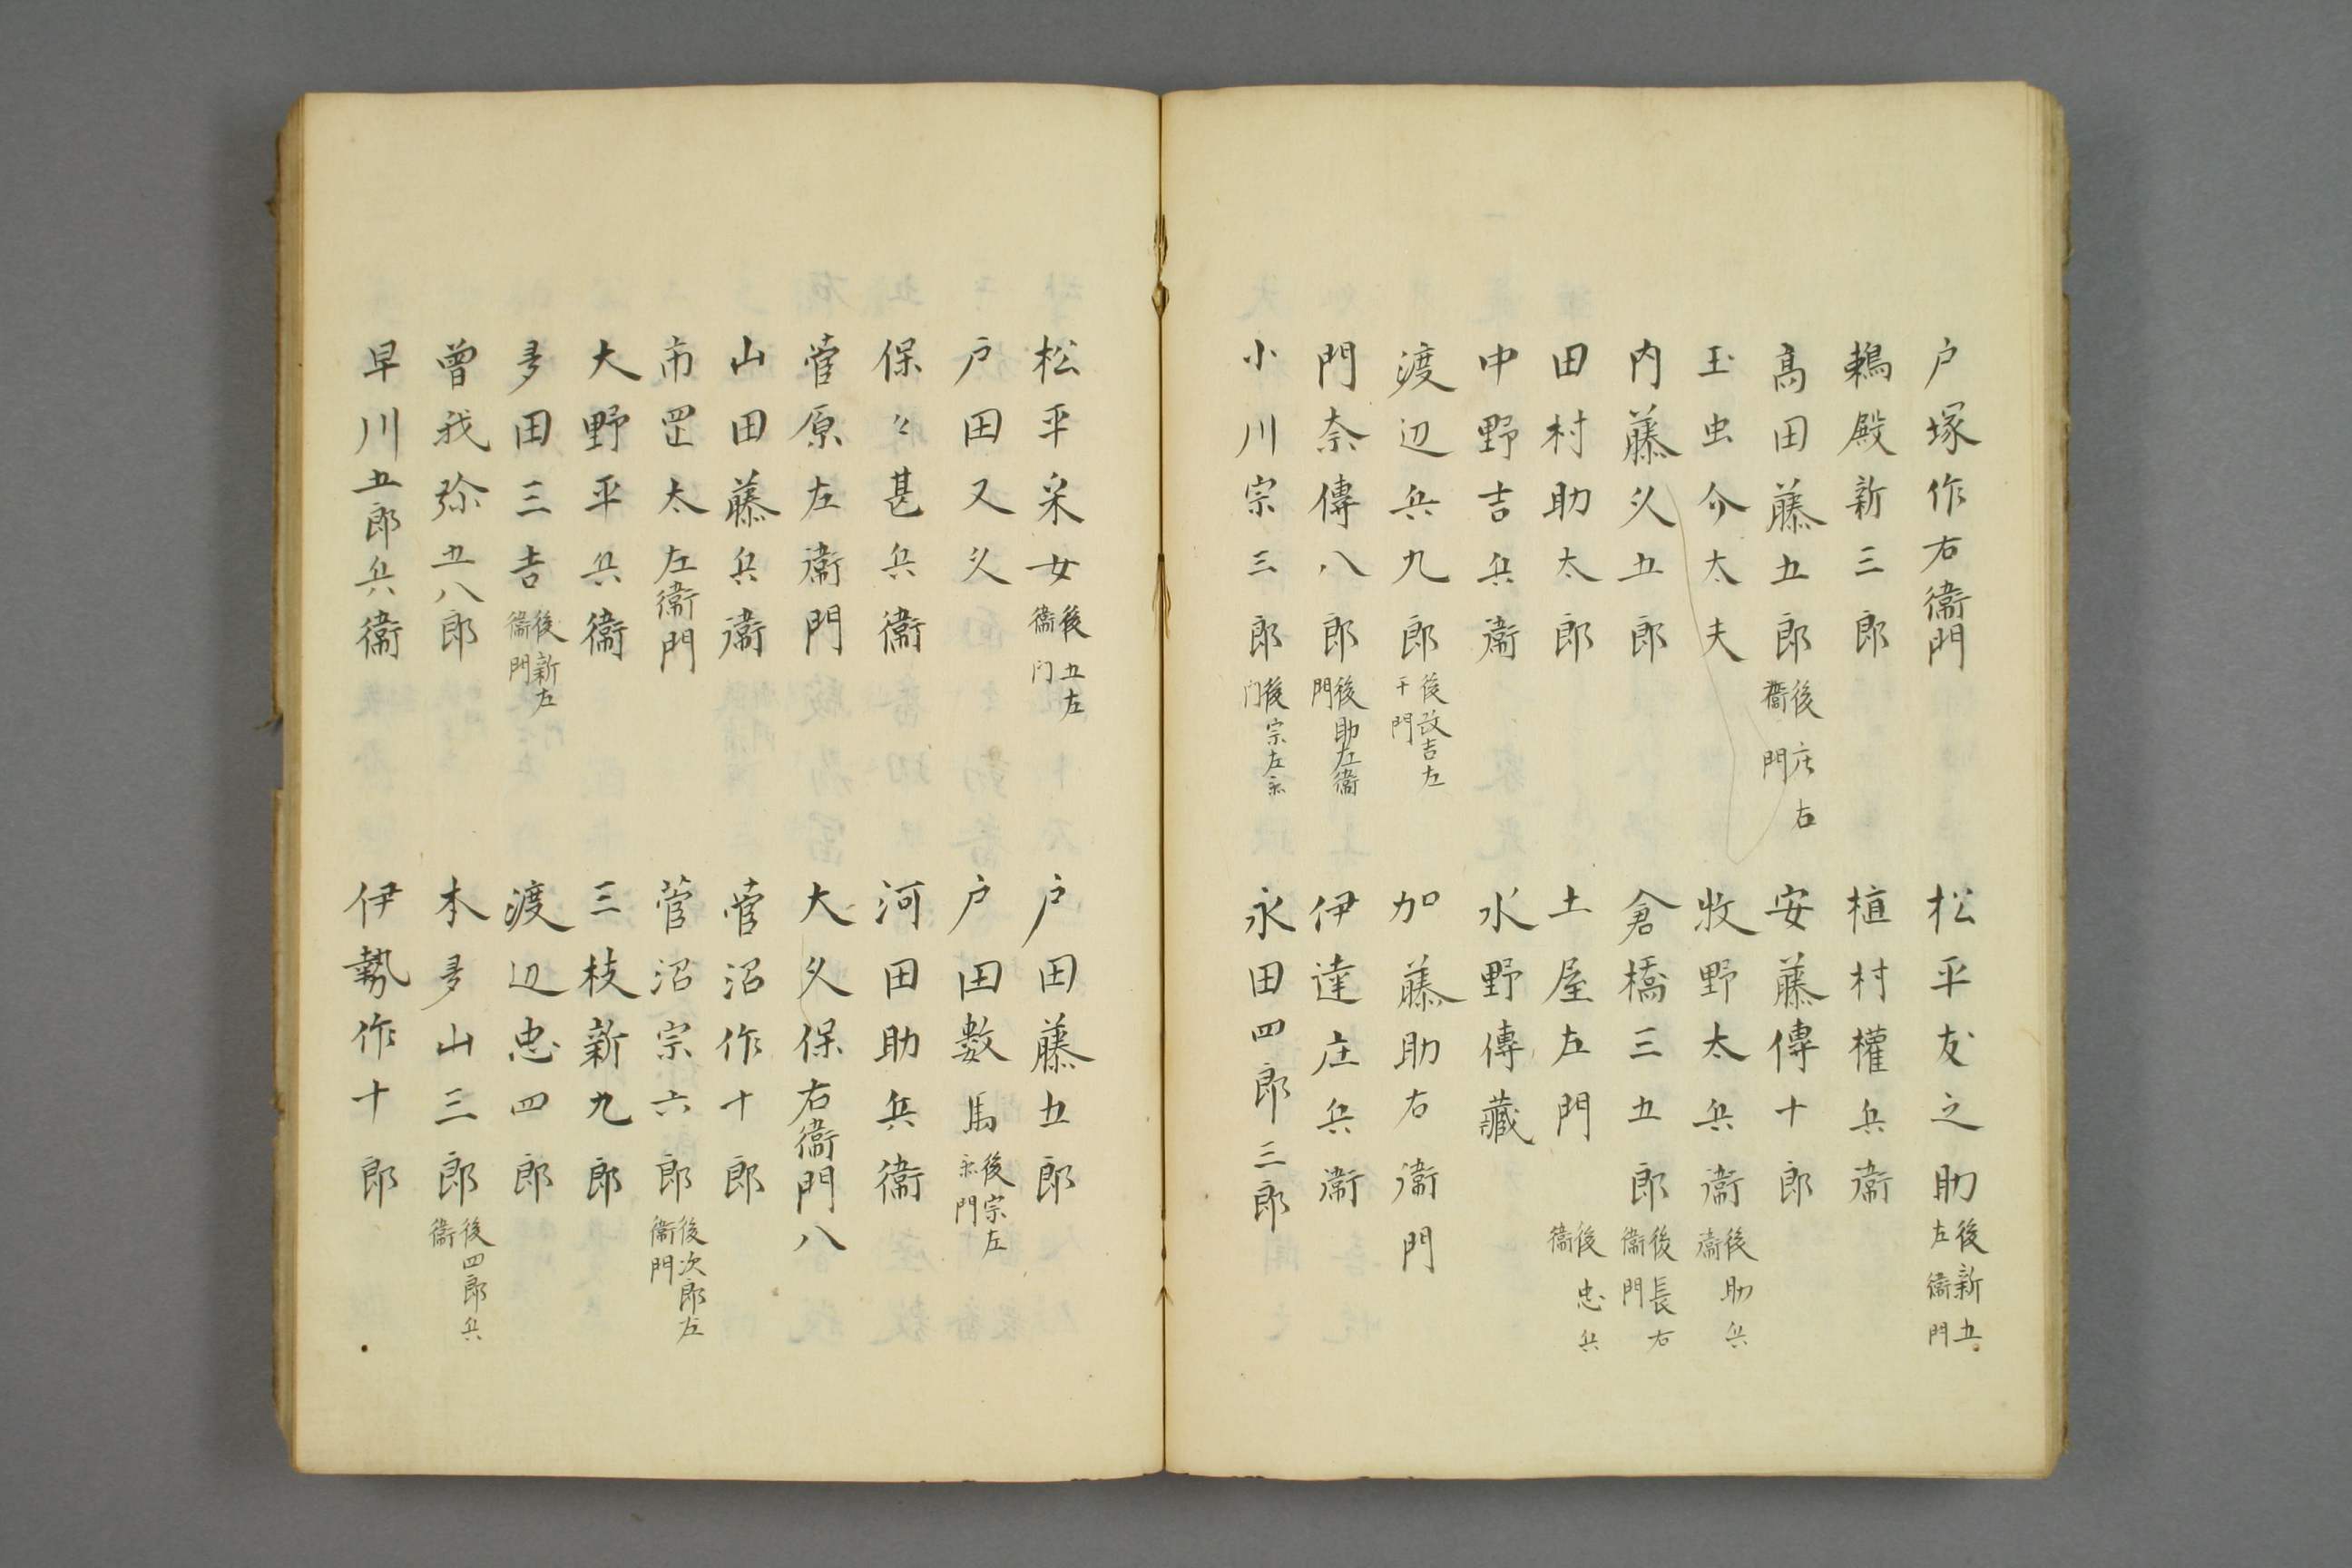 戸塚作右衞門　松平友之助後新五左衞門
鵜殿新三郎　植村權兵衞
髙田藤五郎後庄右衞門　安藤傳十郎
玉虫介太夫　牧野太兵衞後助兵衞
内藤久五郎　倉橋三五郎後長右衞門
田村助太郎　土屋左門後忠兵衞
中野吉兵衞　水野傳藏
渡辺兵九郎後改吉左門　加藤助右衞門
門奈傳八郎後助左衞門　伊達庄兵衞
小川宗三郎後宗左门　永田四郎三郎
松平采女後五左衞门　戸田藤五郎
戸田又久　戸田數馬後宗左門
保々甚兵衞　河田助兵衞
菅原左衞門　大久保右衞門八
山田藤兵衞　菅沼作十郎
市罡太左衞門　菅沼宗六郎後次郎左衞門
大野平兵衞　三枝新九郎
多田三吉後新左衞門　渡辺忠四郎
曽我弥五八郎　本多山三郎後四郎兵衞
早川五郎兵衞　伊勢作十郎